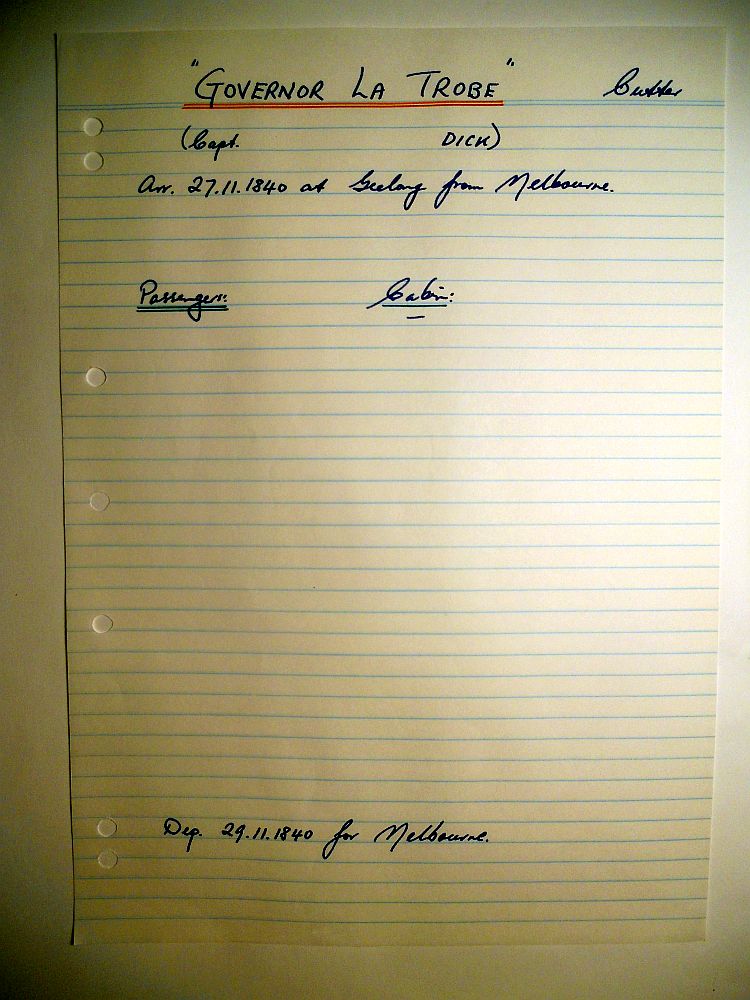 "GOVERNOR LA TROBE" Cutter
(Capt. DICK)
Arr. 27.11.1840 at Geelong from Melbourne.
Passengers: Cabin:
—
Dep. 29.11.1840 for Melbourne.